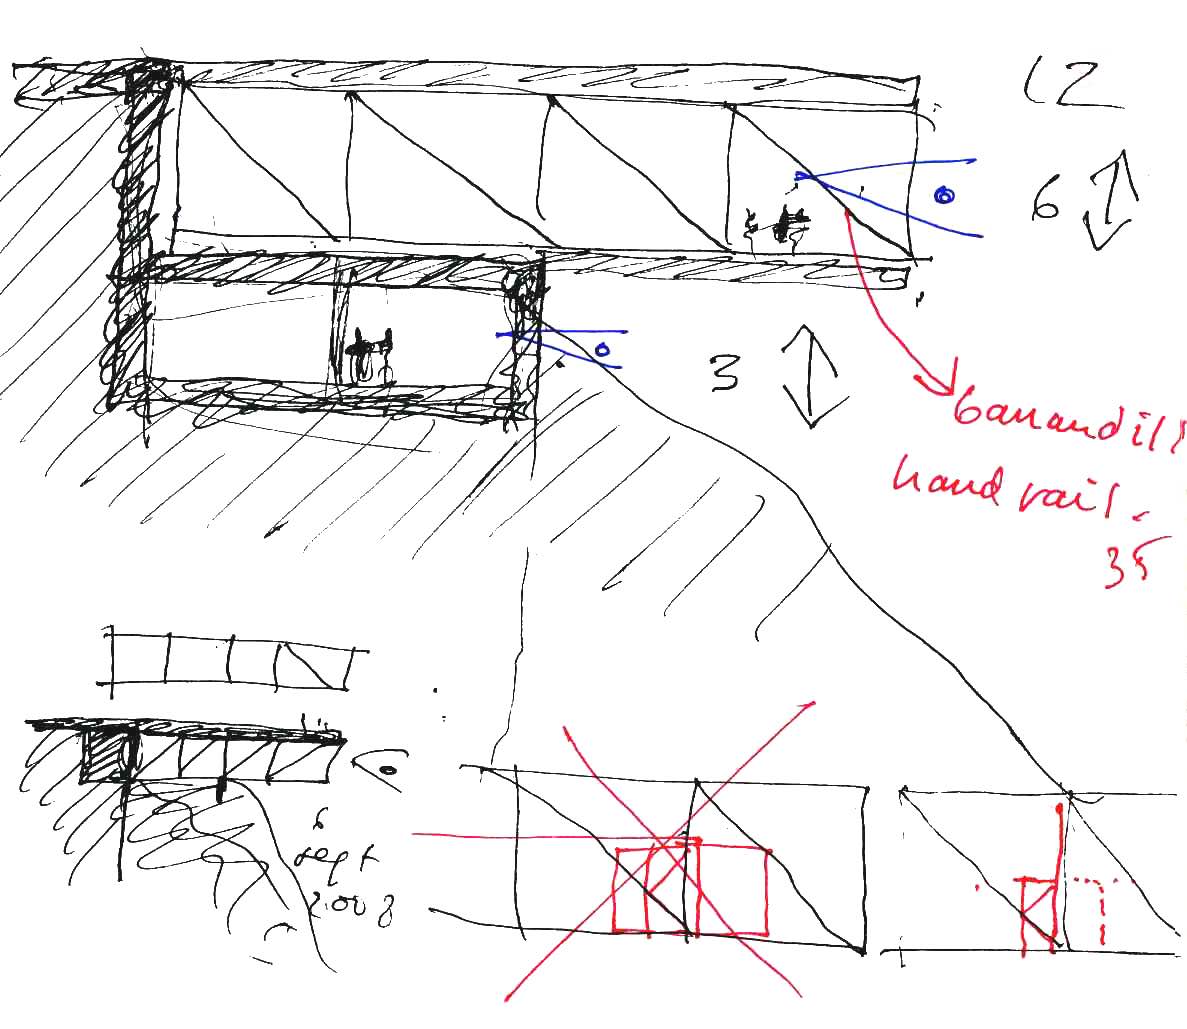 12
6
3
barandill
hand rail.
35
6
sept
2008